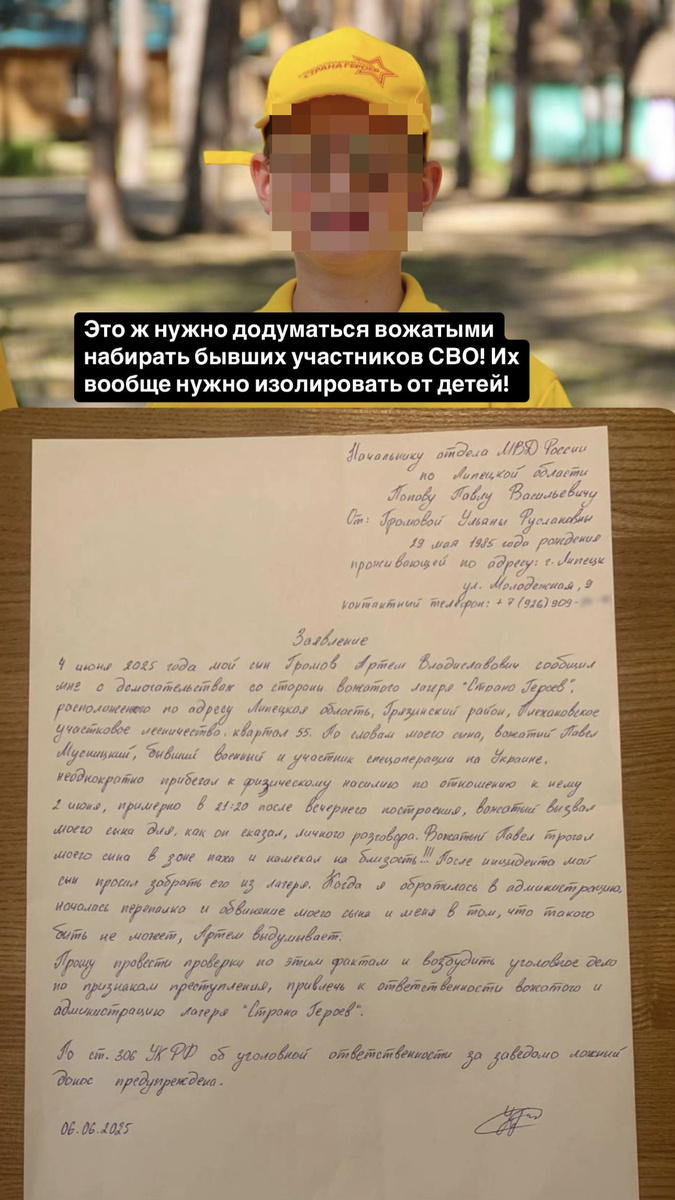 СТРАНА ГЕРОЕВ
Это ж нужно додуматься вожатыми
набирать бывших участников СВО! Их
вообще нужно изолировать от детей!
Начальнику отдела МВД России
по Липецкой области
Попову Павлу Васильевичу
От: Громовой Ульяны Руслановны
29 мая 1985 года рождения
проживающей по адресу: г. Липецк
ул. Молодежная, 9
контактный телефон: +7 (926) 909-
Заявление
4 июня 2025 года мой сын Громов Артем Владиславович сообщил
мне о домогательствах со стороны вожатого лагеря "Страна Героев",
расположенного по адресу Липецкая область, Грязинский район, Плехановское
участковое лесничество. квартал 55. По словам моего сына, вожатый Павел
Мусницкий, бывший военный и участник спецоперации на Украине,
неоднократно прибегал к физическому насилию по отношению к нему
2 июня, примерно в 21:20 после вечернего построения, вожатый вызвал
моего сына для, как он сказал, личного разговора. Вожатый Павел трогал
моего сына в зоне паха и намекал на близость!!! После инцидента мой
сын просил забрать его из лагеря. Когда я обратилась в администрацию,
началась перепалка и обвинение моего сына и меня в том, что такого
быть не может, Артем выдумывает.
Прошу провести проверку по этим фактам и возбудить уголовное дело
по признакам преступления, привлечь к ответственности вожатого и
администрацию лагеря "Страна Героев".
По ст. 306 УК РФ об уголовной ответственности за заведомо ложный
донос предупреждена.
06.06.2025